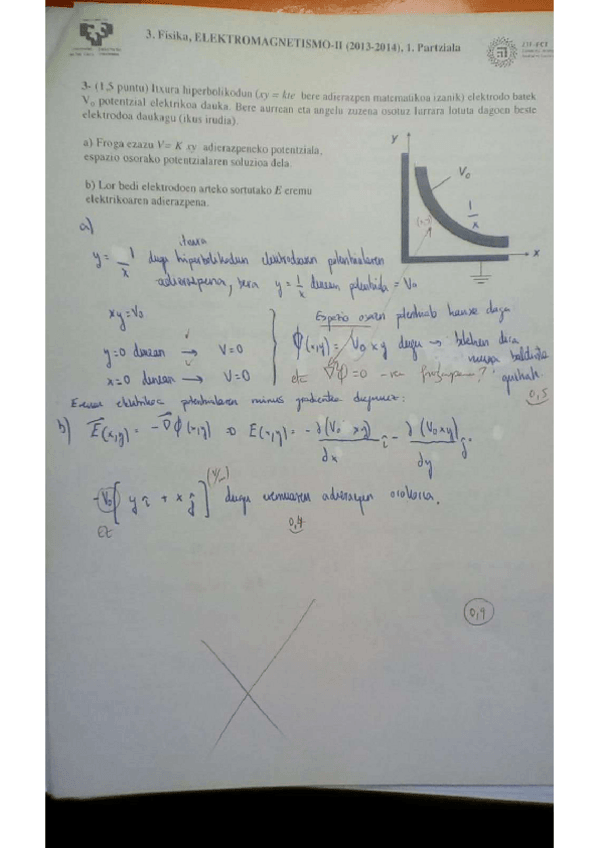 3. Fisika, ELEKTROMAGNETISMO-II (2013-2014), 1. Partziala
3- (1,5 puntu) Itxura hiperbolikodun (xy = kte bere adierazpen matematikoa izanik) elektrodo batek
V₀ potentzial elektrikoa dauka. Bere aurrean eta angelu zuzena osotuz lurrara lotuta dagoen beste
elektrodoa daukagu (ikus irudia).
a) Froga ezazu V= K xy adierazpeneko potentziala,
espazio osorako potentzialaren soluzioa dela.
b) Lor bedi elektrodoen arteko sortutako E eremu
elektrikoaren adierazpena.
y
V₀
1/x
x
a)
itxura
y = 1/x dugu hiperbolikodun elektrodoaren potentzialaren
adierazpena, bera y = 1/x denean potentziala = V₀
xy = V₀
y=0 denean → V=0
x=0 denean → V=0
Espazio osoan potentziala hauxe da
ϕ(x,y) = V₀ xy dugu → betetzen dira
muga baldintza
guztiak.
eta ∇²ϕ = 0 frogapena?
0,5
Eremu elektrikoa potentzialaren minus gradientea dugunez:
b) E(x,y) = -∇ϕ(x,y) ⇒ E(x,y) = - ∂(V₀ xy)/dx i - ∂(V₀ xy)/dy j
-V₀[y i + x j] (V/m) dugu eremuaren adierazpen orokorra.
Ez
0,4
0,9